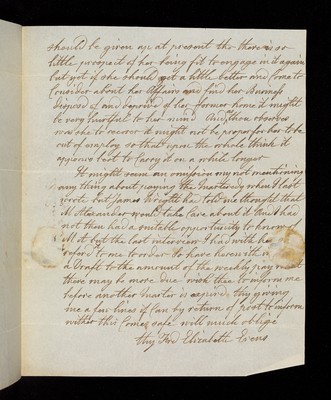 should be given up at present tho there is so
little prospect of her being fit to engage in it again
but yet if she should get a little better and come to
Consider about her Affairs and find her Business
disposed of and deprived of her former home it might
be very hurtful to her mind And thou observes
was she to recover it might not be proper for her to be
out of employ so that upon the whole think it
appears best to Carry it on a while longer
It might seem an omission my not mentioning
any thing about paying the Quarteridge when I last
wrote but James Wright had told me thought that
M Alexander would take Care about it And I had
not then had a suitable opportunity to know
M A but the last interview I had with her
refer'd to me to order to have herewith
a Draft to the amount of the weekly pay
there may be more due wish thee to inform me
before another Quarter is expired, thy giving
me a few lines if Can by return of post to inform
wither this Comes safe will much oblige
thy Frd Elizabeth Evens